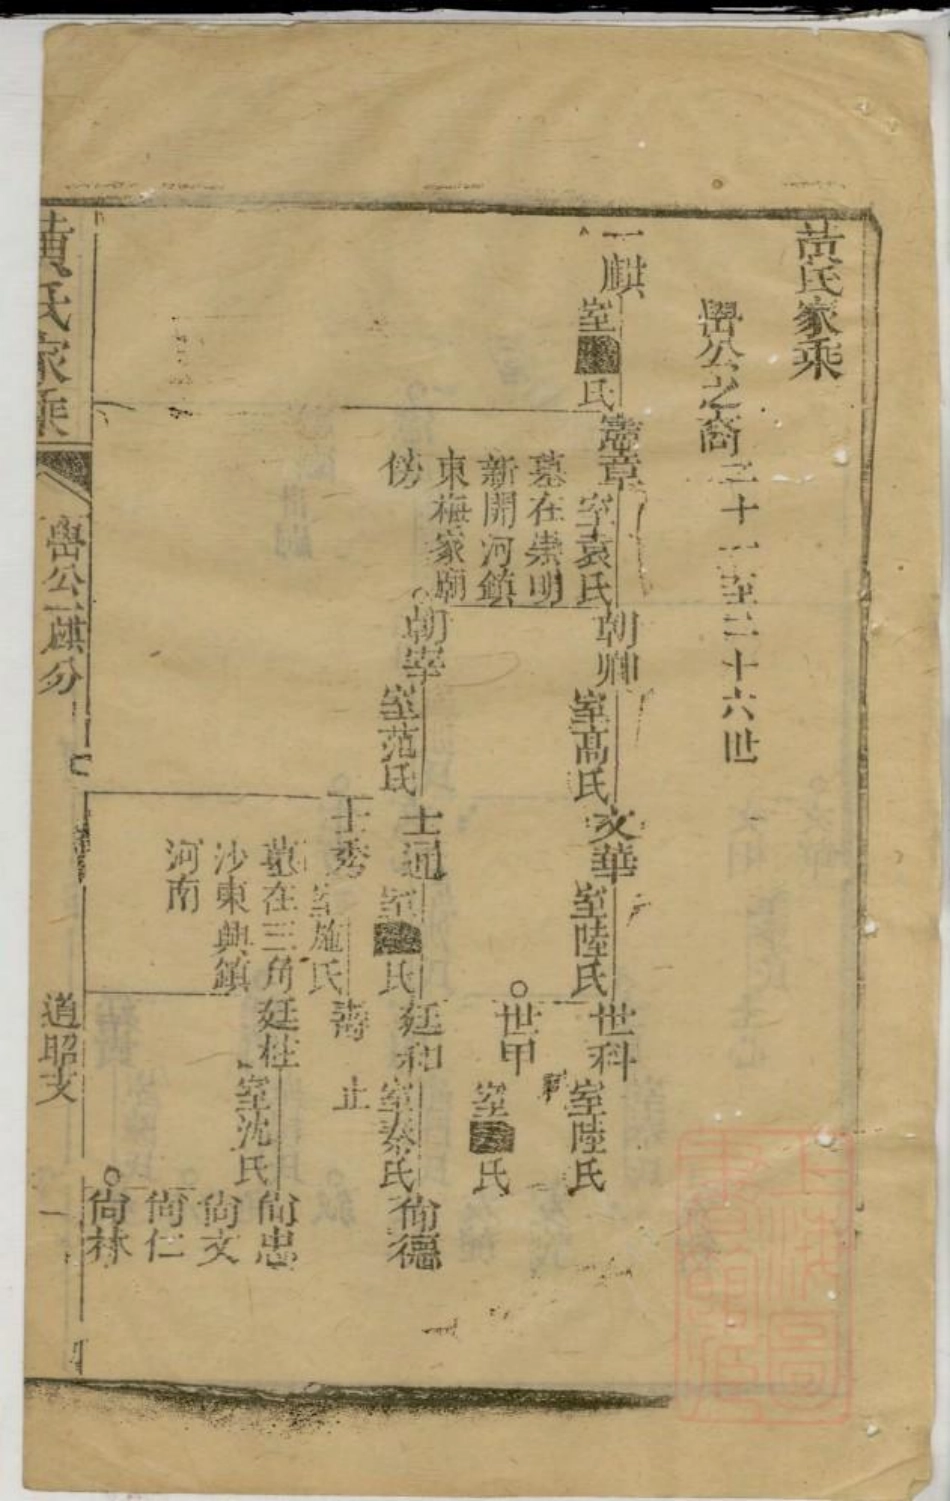 黃氏家乘
嚳公之裔二十一至二十六世
一麒
室氏
憲章
室袁氏
墓在崇明
新開河鎮
東梅家廟
傍
朝卿
室高氏
朝宰
室范氏
文華
室陸氏
士通
室氏
士秀
室施氏
墓在三角
沙東興鎮
河南
世科
室陸氏
世甲
室氏
廷和
室秦氏
壽
止
廷柱
室沈氏
尙德
尙忠
尙文
尙仁
尙林
黃氏家乘
嚳公一麒分
道昭支
一